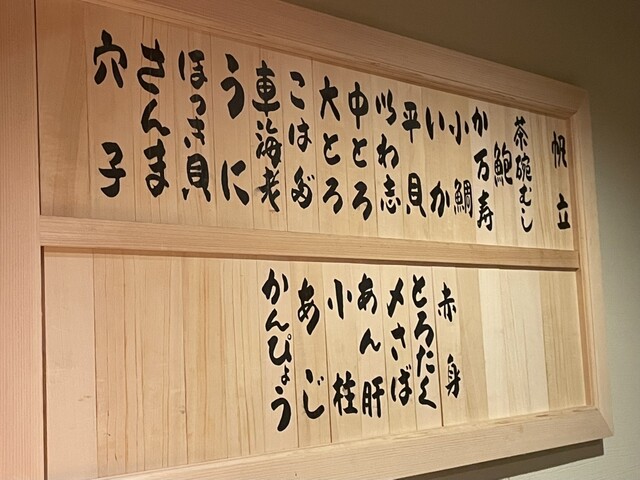 帆立
茶碗むし
鮑
か万寿
小鯛
いか
平貝
いわ志
中とろ
大とろ
こはだ
車海老
うに
ほっき貝
さんま
穴子
赤身
とろたく
〆さば
あん肝
小柱
あじ
かんぴょう